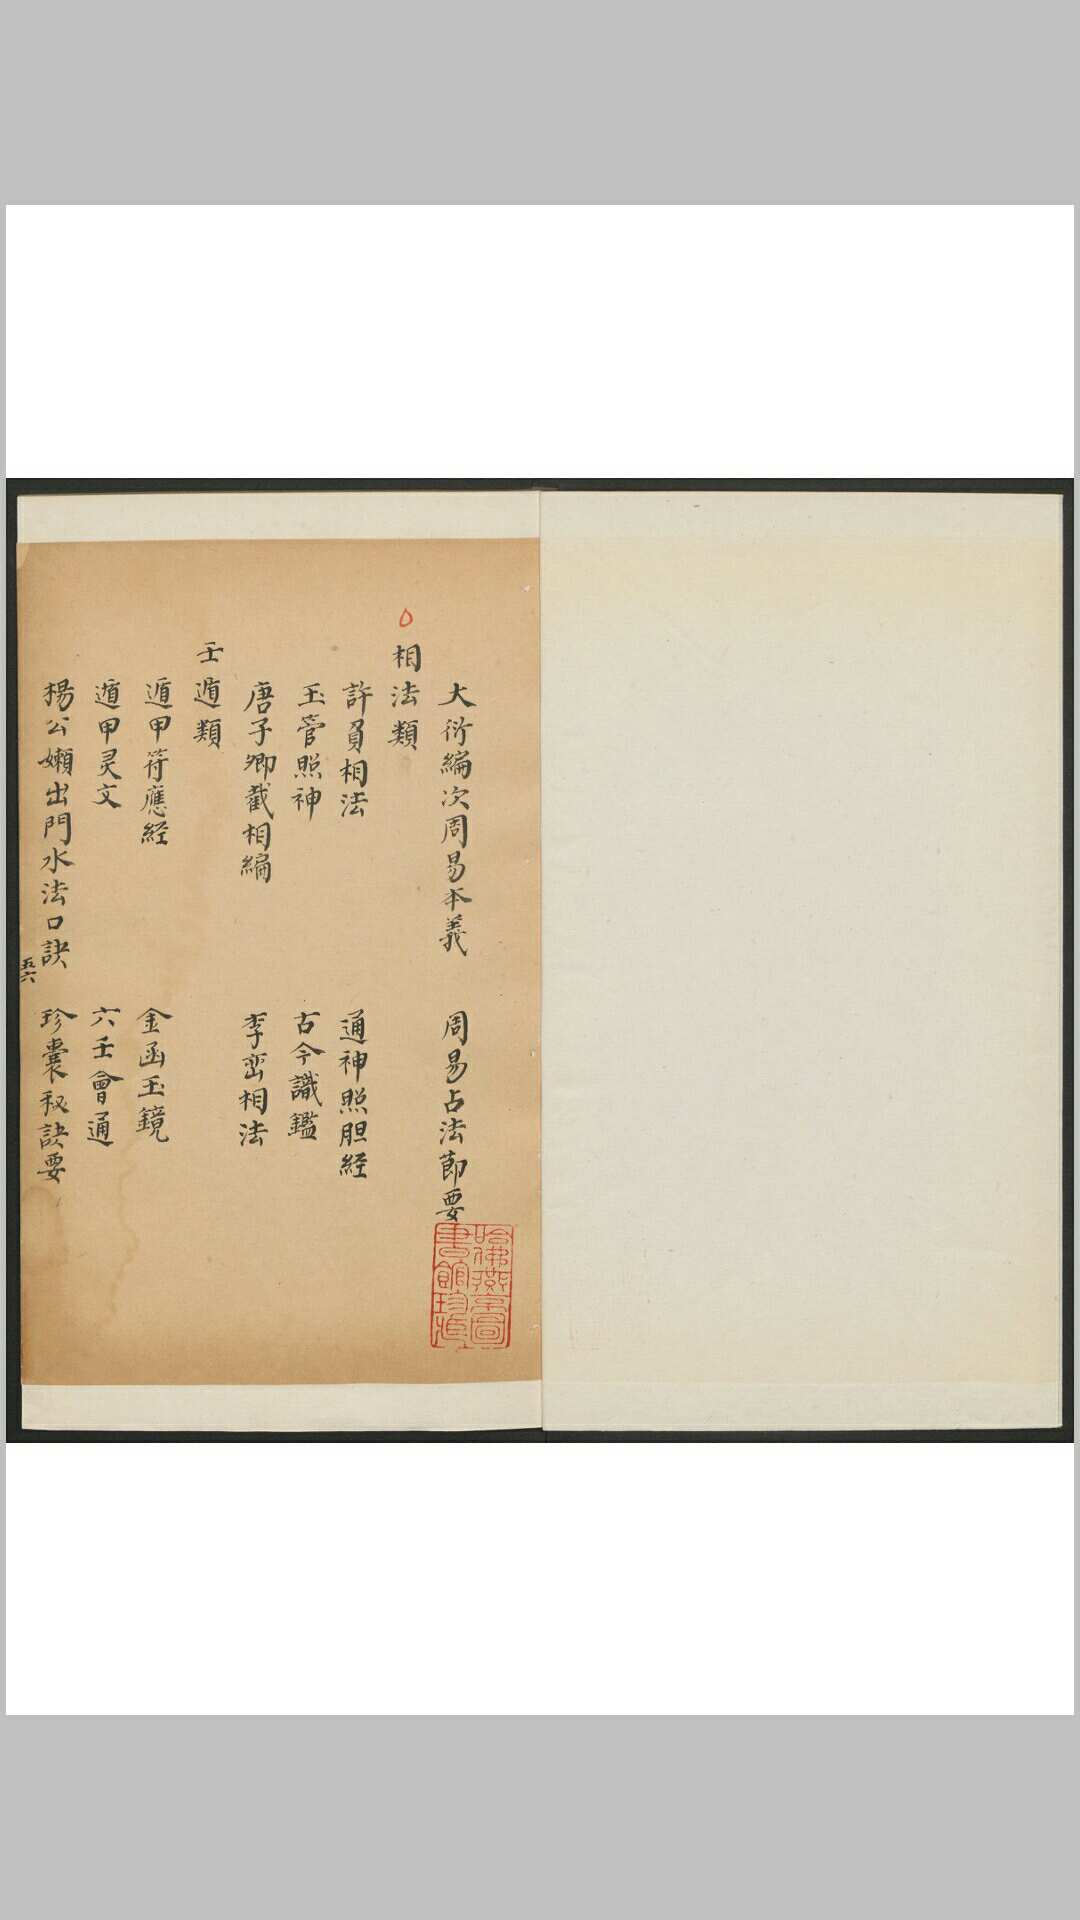 大衍編次周易本義　周易占法節要
相法類
許負相法　通神照胆経
玉管照神　古今識鑑
唐子卿截相編　李峦相法
壬遁類
遁甲符應経　金函玉鏡
遁甲灵文　六壬會通
楊公嬾出門水法口訣　珍囊秘訣要
五六
哈佛燕京圖
書館珍藏